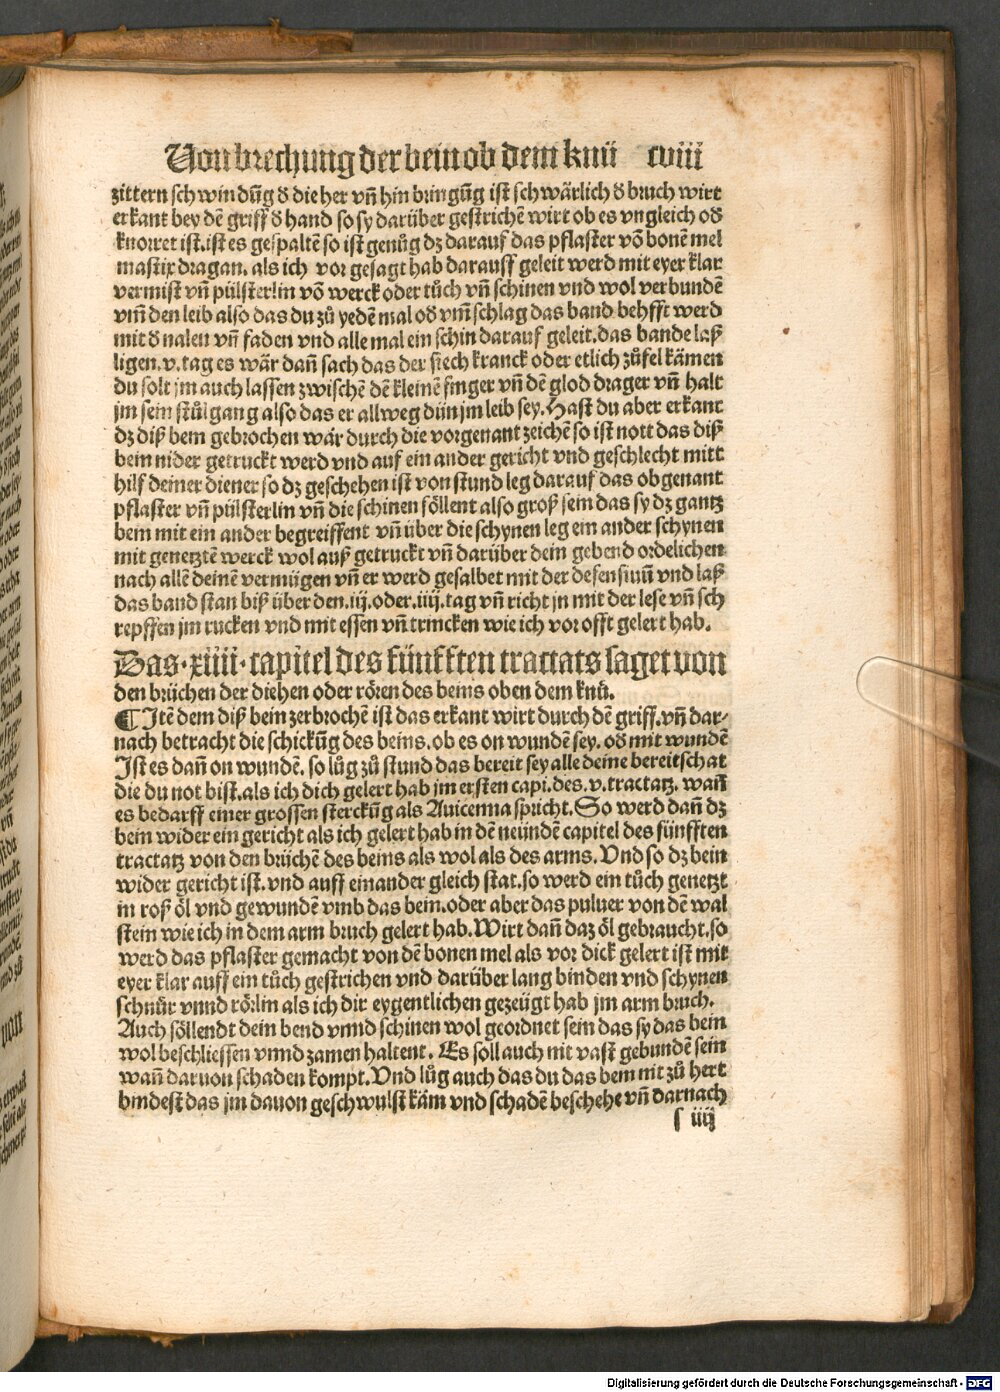 Von brechung der bein ob dem knü cviii
zittern schwindūg d̄ die her vn̄ hin bringūg ist schwärlich d̄ bruch wirt
erkant bey dē griff d̄ hand so sy darüber gestrichē wirt ob es vngleich od̄
knorret ist. ist es gespaltē so ist genůg dz darauf das pflaster vō bonē mel
mastix dragan. als ich vor gesagt hab darauff geleit werd mit eyer klar
vermist vn̄ pülsterlin vō werck oder tůch vn̄ schinen vnd wol verbundē
vm̄ den leib also das du zů yedē mal od̄ vm̄schlag das band behfft werd
mit d̄ nalen vn̄ faden vnd alle mal ein schin darauf geleit. das bande laß
ligen .v. tag es wär dan̄ sach das der siech kranck oder etlich zůfel kämen
du solt jm auch lassen zwischē dē kleinē finger vn̄ dē glod drager vn̄ halt
jm sein stůlgang also das er allweg dün jm leib sey. Hast du aber erkant
dz diß bein gebrochen wär durch die vorgenant zeichē so ist nott das diß
bein nider getruckt werd vnd auf ein ander gericht vnd geschlecht mitt
hilf deiner diener so dz geschehen ist von stund leg darauf das obgenant
pflaster vn̄ pülsterlin vn̄ die schinen söllent also groß sein das sy dz gantz
bein mit ein ander begreiffent vn̄ über die schynen leg ein ander schynen
mit genetztē werck wol auß getruckt vn̄ darüber dein gebend ordelichen
nach allē deinē vermügen vn̄ er werd gesalbet mit der defensiuū vnd laß
das band stan biß über den .iij. oder .iiij. tag vn̄ richt jn mit der lese vn̄ sch
repffen jm rucken vnd mit essen vn̄ trincken wie ich vor offt gelert hab.
Das ·xiiii· capitel des fünfften tractats saget von
den brüchen der diehen oder rören des beins oben dem knü.
¶ Itē dem diß bein zerbrochē ist das erkant wirt durch dē griff. vn̄ dar-
nach betracht die schickūg des beins. ob es on wundē sey. od̄ mit wundē
Ist es dan̄ on wundē. so lůg zů stund das bereit sey alle deine bereitschat
die du not bist. als ich dich gelert hab jm ersten capi. des .v. tractatz. wan̄
es bedarff einer grossen sterckūg als Auicenna spricht. So werd dan̄ dz
bein wider ein gericht als ich gelert hab in dē neündē capitel des fünfften
tractatz von den brüchē des beins als wol als des arms. Vnd so dz bein
wider gericht ist. vnd auff einander gleich stat. so werd ein tůch genetzt
in roß öl vnd gewundē vmb das bein. oder aber das puluer von dē wal
stein wie ich in dem arm bruch gelert hab. Wirt dan̄ daz öl gebraucht. so
werd das pflaster gemacht von dē bonen mel als vor dick gelert ist mit
eyer klar auff ein tůch gestrichen vnd darüber lang binden vnd schynen
schnůr vnnd rörlin als ich dir eygentlichen gezeügt hab jm arm bruch.
Auch söllendt dein bend vnnd schinen wol geordnet sein das sy das bein
wol beschliessen vnnd zamen haltent. Es soll auch nit vast gebundē sein
wan̄ daruon schaden kompt. Vnd lůg auch das du das bein nit zů hert
bindest das jm dauon geschwulst käm vnd schadē beschehe vn̄ darnach
s iiij
Digitalisierung gefördert durch die Deutsche Forschungsgemeinschaft - DFG